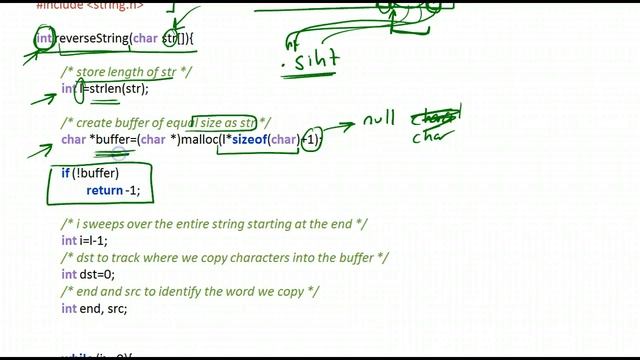 #include <string.h>
int reverseString(char str[]){
. siht
/* store length of str */
int l=strlen(str);
/* create buffer of equal size as str */
char *buffer=(char *)malloc(l*sizeof(char)+1);
null
char
if (!buffer)
return -1;
/* i sweeps over the entire string starting at the end */
int i=l-1;
/* dst to track where we copy characters into the buffer */
int dst=0;
/* end and src to identify the word we copy */
int end, src;